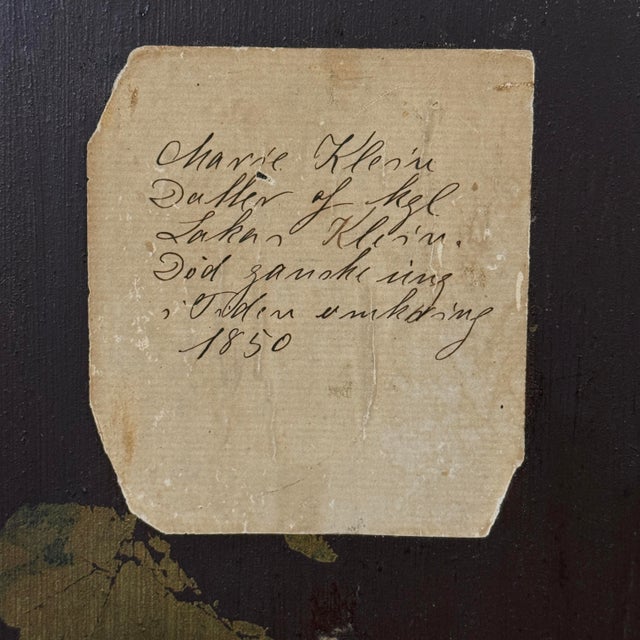 Marie Klein
Datter af kgl
Lakai Klein.
Död ganske ung
i Tiden omkring
1850